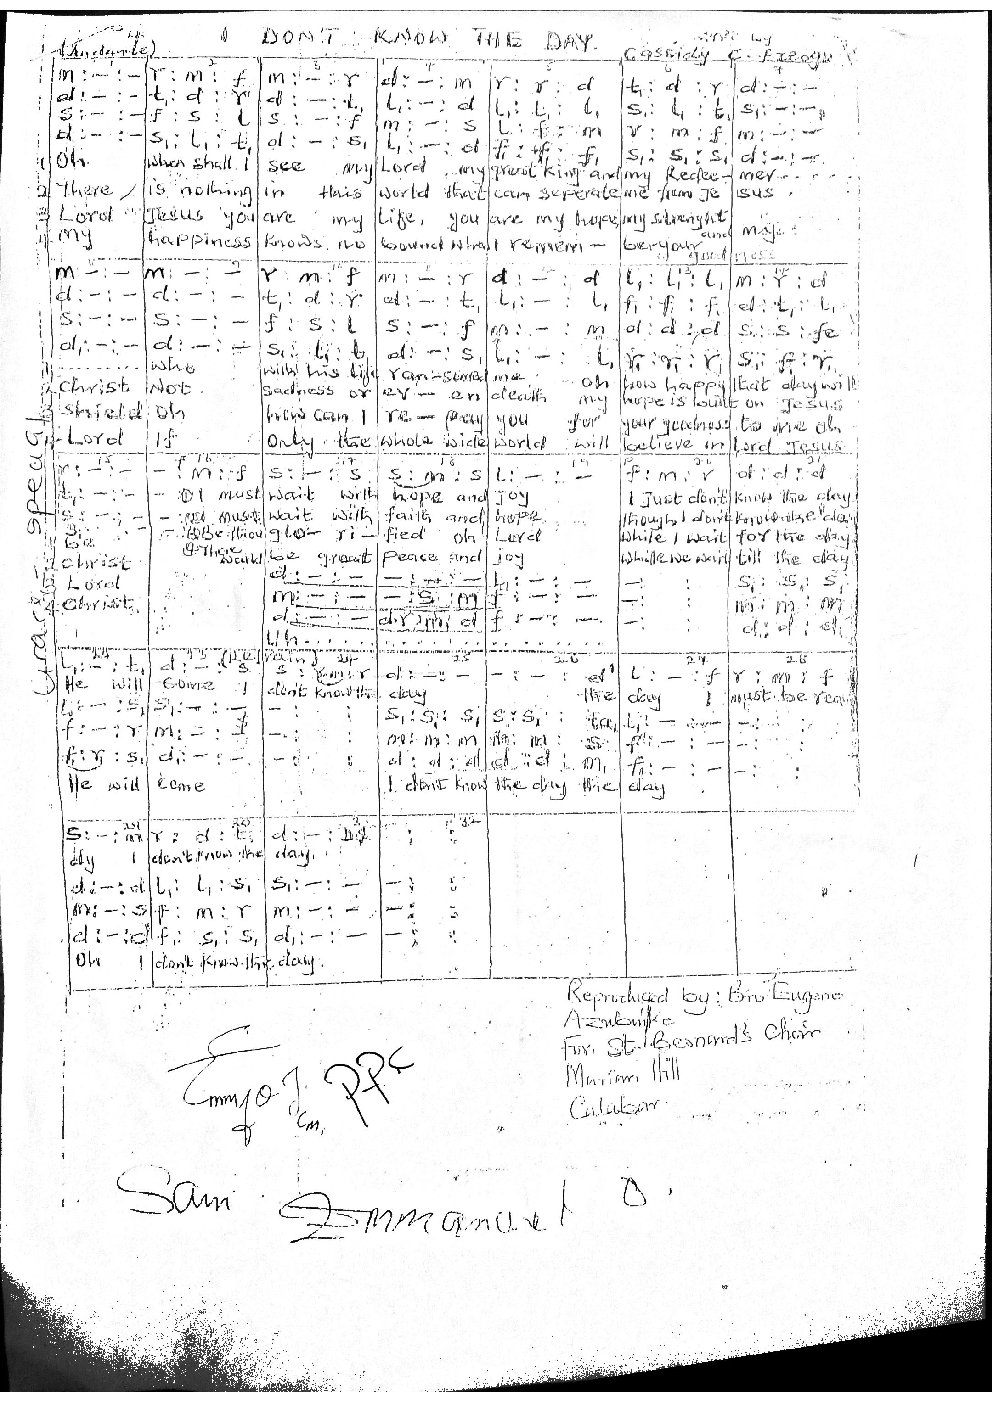 I DON'T KNOW THE DAY.
(Andante)
by
Cassidy C.
m : – : – r : m : f m : – : r d : – : m r : r : d t₁ : d : r d : – : –
d : – : – t₁ : d : r d : – : t₁ l₁ : – : d l₁ : l₁ : l₁ s₁ : l₁ : t₁ s₁ : – : –
s : – : – f : s : l s : – : f m : – : s l : f : m r : m : f m : – : –
d : – : – s₁ : l₁ : t₁ d : – : s₁ l₁ : – : d f₁ : f₁ : f₁ s₁ : s₁ : s₁ d : – : –
1 Oh when shall I see my Lord my great king and my Redee- mer
2 There is nothing in this world that can seperate me from Je sus.
3 Lord Jesus you are my life, you are my hope my strenght and my
4 My happiness knows no bound when I remem- ber your goodness
m – : – m : – : – r m : f m : – : r d : – : d l₁ : l₁ : l₁ m : r : d
d : – : – d : – : – t₁ : d : r d : – : t₁ l₁ : – : l₁ f₁ : f₁ : f₁ d : t₁ : l₁
s : – : – s : – : – f : s : l s : – : f m : – : m d : d : d s : s : fe
d₁ : – : – d : – : – s₁ : l₁ : t₁ d : – : s₁ l₁ : – : l₁ r₁ : r₁ : r₁ s₁ : f₁ : r₁
Christ who with his life ran-somed me oh how happy that day will
Not sadness or ev-en death my hope is built on Jesus
shield oh how can I re-pay you for your goodness to me oh
Lord If only the whole wide world will believe in Lord Jesus
r : – : – – : m : f s : – : s s : m : s l : – : – f : m : r d : d : d
be O I must wait with hope and joy I just don't know the day
Christ must wait with faith and hope though I don't know the day
Lord Be thou glo-ri-fied oh Lord while I wait for the day
Christ There would be great peace and joy while we wait till the day
d : – : – – : – : – l₁ : – : – – : : s₁ : s₁ : s₁
m : – : – – : s : m f : – : – – : : m : m : m
d : – : – d r : m : d f : – : – – : : d : d : d
Uh
l₁ : – : t₁ d : – : s s : r d : – : – – : – : d l : – : f r : m : f
He will come I don't know the day the day I must be ready
l₁ : – : s₁ s₁ : – : – – : : s₁ : s₁ : s₁ s₁ : s₁ : ta₁ l₁ : – : – – : :
f : – : r m : – : – – : : m : m : m m : m : s f : – : – – : :
f₁ : r₁ : s₁ d₁ : – : – – : : d : d : d d : d : m₁ f₁ : – : – – : :
He will come I don't know the day the day
s : – : m r : d : t₁ d : – :
day I don't know the day.
d : – : d l₁ : l₁ : s₁ s₁ : – : – – : :
m : – : s f : m : r m : – : – – : :
d : – : d f₁ : s₁ : s₁ d₁ : – : – – : :
Oh I don't know the day.
Reproduced by: Bro Eugene
Azubuike
For St. Bernard's Choir
Marian Hill
Calabar
Emmyo J. PPC
Sam Emmanuel O.